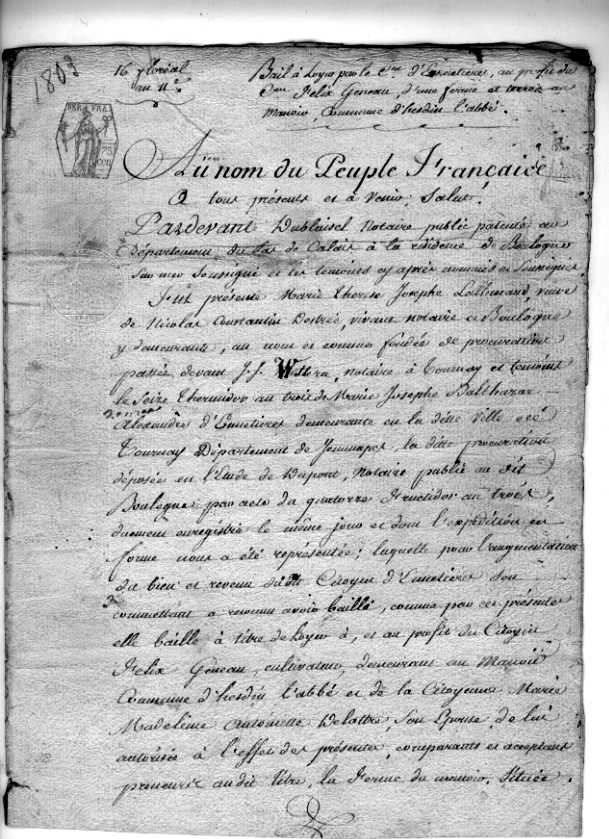 1803
16 floréal
an 11e
Bail à Loyer par le Cen d'Ennetieres, au profit du
Cen Felix Geneau, d'une ferme et terres au
Manoir, Commune d'hesdin l'abbé.
REP. FRA.
75
Au nom du Peuple Française
A tous présents et à venir; Salut.
Pardevant Dublaisel Notaire public patenté au
département du Pas de Calais à la résidence de Boulogne
sur mer Soussigné et les temoins cy après nommés et Soussignés
Fut présente Marie Therese Josephe Lallemand, veuve
de Nicolas Constantin Destrée, vivant notaire à Boulogne
y demeurante, au nom et comme fondée de procuration
passée devant J. J. notaire à Tournay et temoins
le Seize Thermidor an trois de Marie Josephe Balthazar
Alexandre d'Ennetieres demeurante en la ditte Ville
Tournay Département de Jemmapes, la ditte procuration
déposée en l'Etude de Dupont, Notaire public au dit
Boulogne, par acte du quatorze fructidor an trois,
duement enregistré le même jour et dont l'expédition en
forme nous a été représentée; laquelle pour l'augmentation
du bien et revenu dudit Citoyen d'Ennetieres Son
commettant a reconnu avoir baillé, comme par ces présentes
elle baille à titre de Loyer à, et au profit du Citoyen
Felix Geneau, cultivateur, demeurant au Manoir
Commune d'hesdin l'abbé et de la Citoyenne Marie
Madeleine Antoinette Delattre, Son Epouse, de lui
autorisée à l'effet des présentes, comparants et acceptans
preneurs audit titre, la ferme du manoir, Située